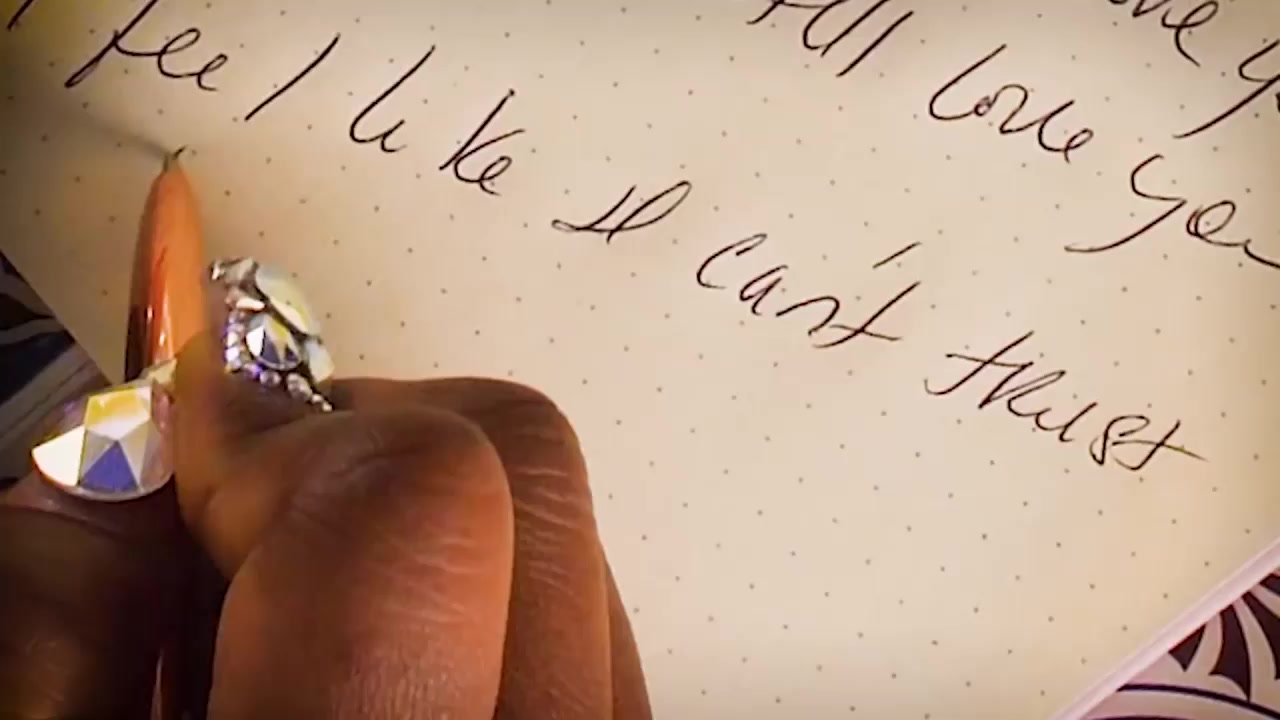 love you
still love you
feel like I can't trust